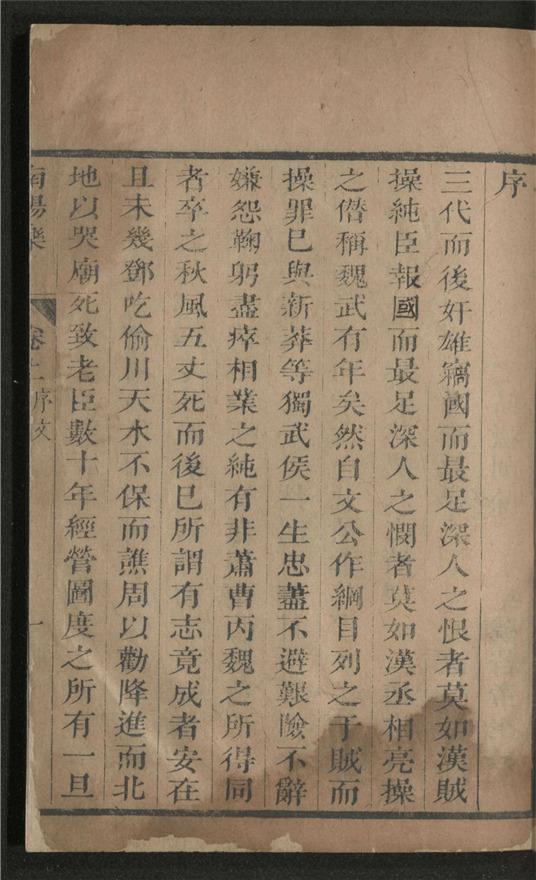 序
三代而後奸雄竊國而最足深人之恨者莫如漢賊
操純臣報國而最足深人之憫者莫如漢丞相亮操
之僭稱魏武有年矣然自文公作綱目列之于賊而
操罪已與新莽等獨武侯一生忠藎不避艱險不辭
嫌怨鞠躬盡瘁相業之純有非蕭曹丙魏之所得同
者卒之秋風五丈死而後已所謂有志竟成者安在
且未幾鄧吃偷川天水不保而譙周以勸降進而北
地以哭廟死致老臣數十年經營圖度之所有一旦
南陽樂 卷二序文 一